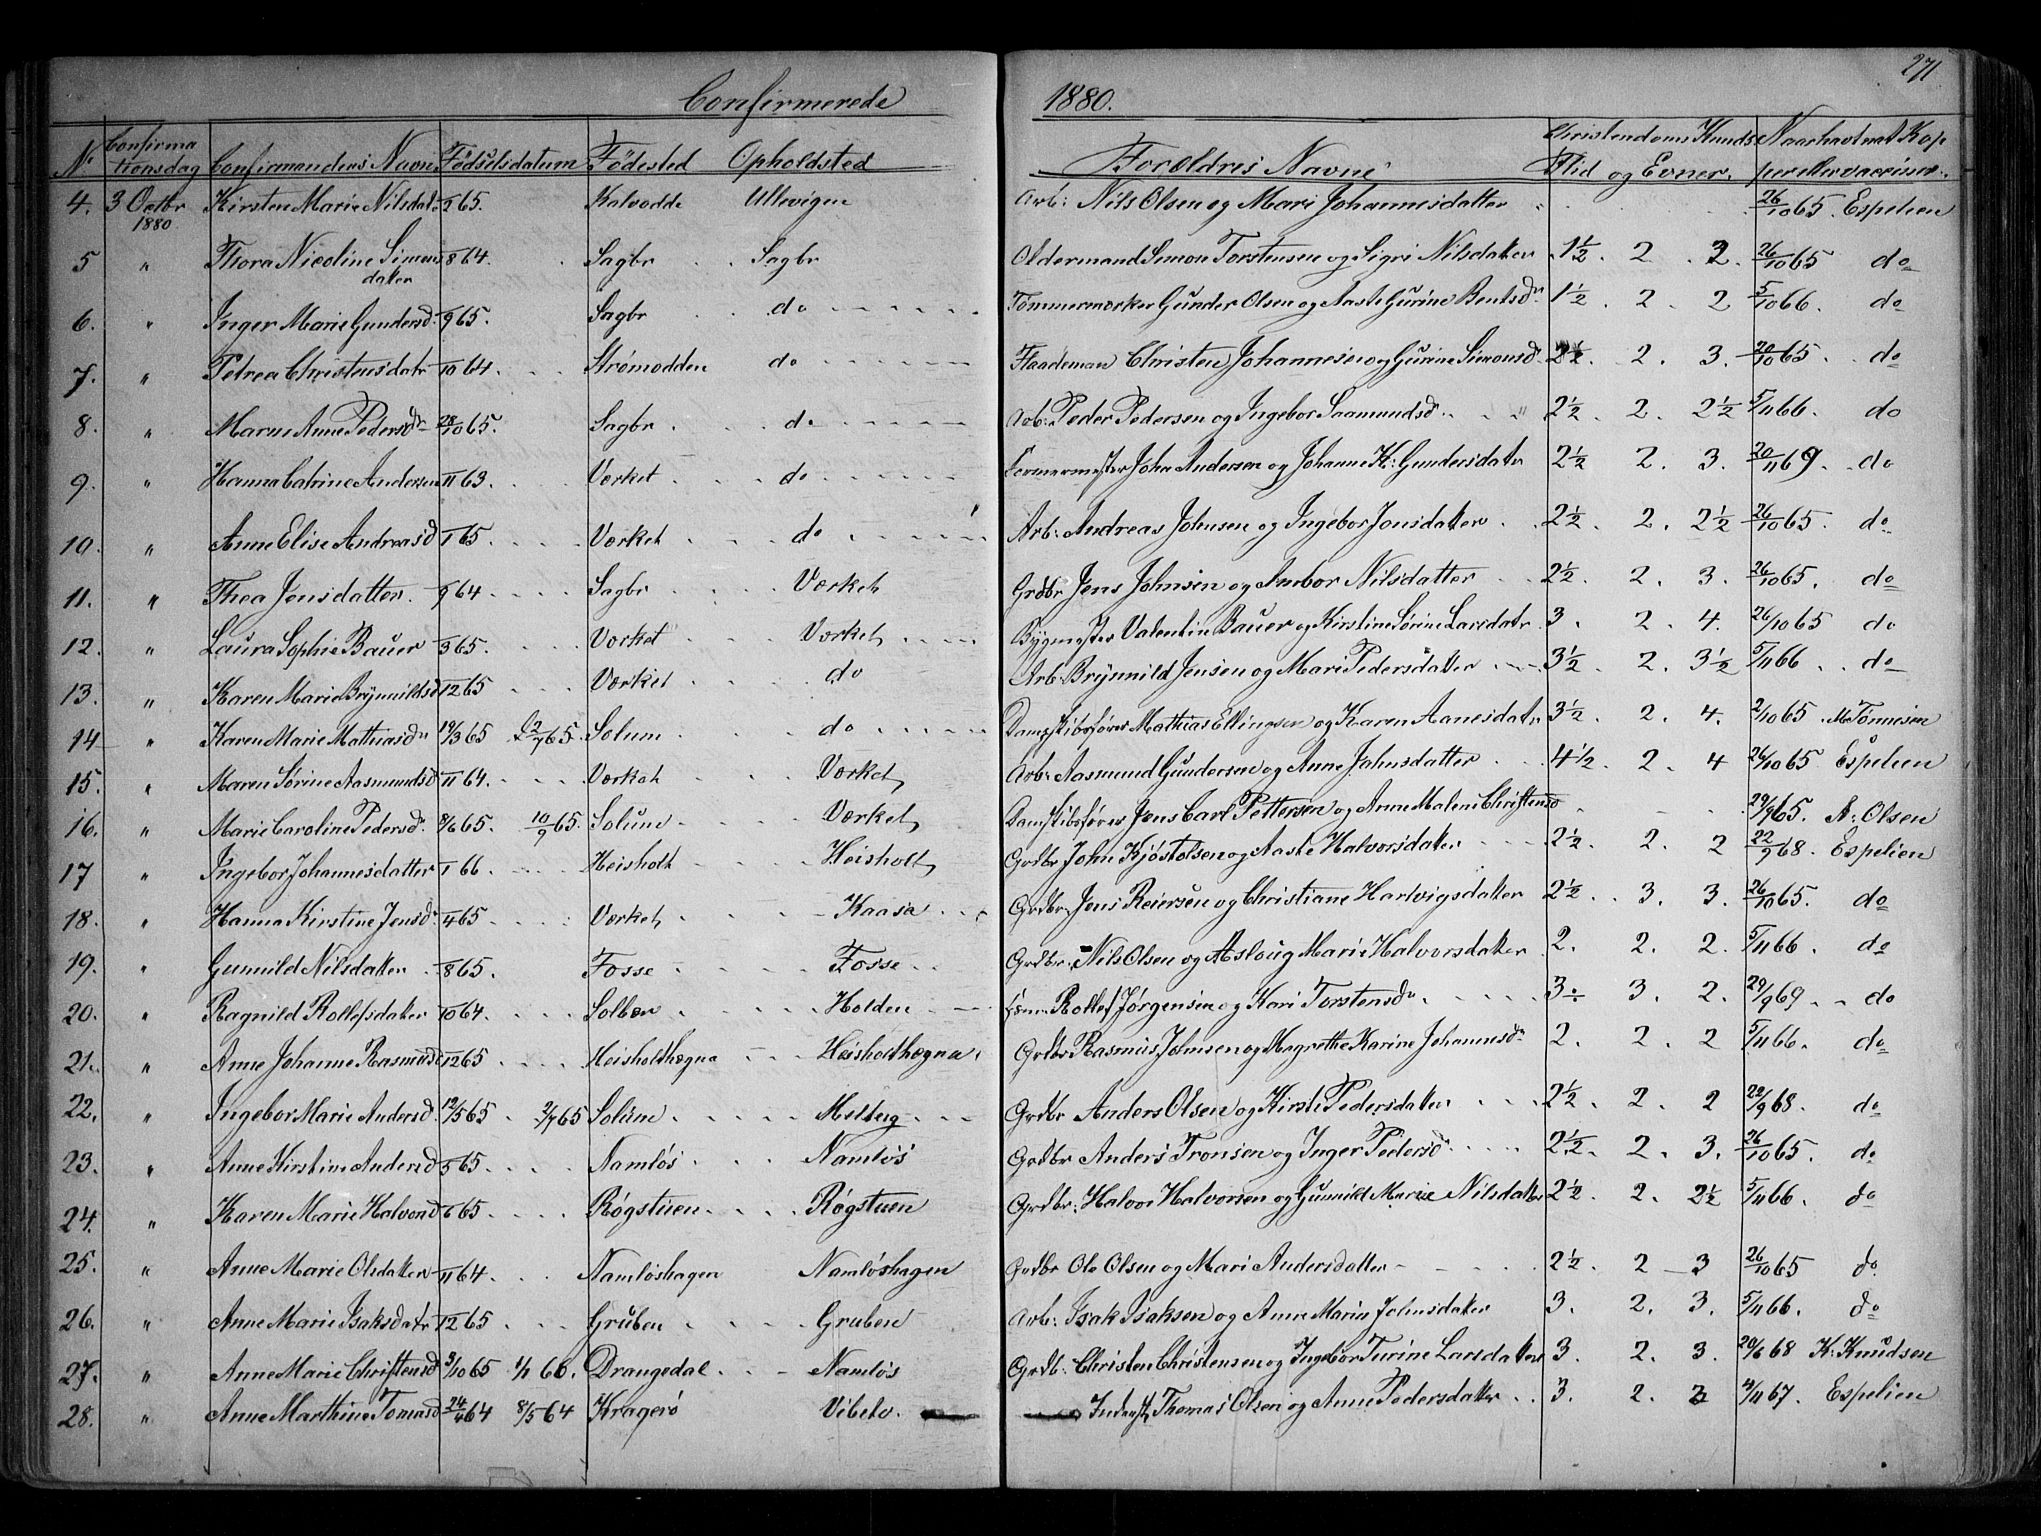 271
Confirmerede 1880.
Nr Confirmationsdag Confirmandens Navn Födselsdatum Födested Opholdsted Forældres Navne Christendoms Kundsk. Flid og Evner. Naar havt nat. Kopper eller vaccineret
4. 3 Octbr 1880 Kirsten Marie Nilsdatr 65. Kalvodde Ullevigen Arb: Nils Olsen og Mari Johannesdatter 26/10 65. Espelien
5 " Thora Nicoline Simonsdatter /8 64. Sagbr Sagbr Oldermand Simon Torstensen og Sigri Nilsdatter 1½. 2. 2. 26/10 65 do
6. " Inger Marie Gundersd. /9 65. Sagbr do Tömmermerker Gunder Olsen og Aaste Gurine Bentsdr 1½. 2. 2 5/10 66. do
7. " Petrea Christensdatr /10 64. Strømodden do Flaademan Christen Johannesen og Gurine Simonsdr 2½. 2. 3. 20/10 65. do
8. " Maren Anne Pedersdr 28/10 65. Sagbr. do Arb: Peder Pedersen og Ingebor Saamundsdr 2½. 2. 2½ 5/11 66. do
9. " Hanna Catrine Andersen /11 63. Værket do Formermester John Andersen og Johanne K: Gundersdatr 2½ 2. 3. 20/11 69. do
10. " Anne Elise Andreasd /1 65. Værket do Arb: Andreas Johnsen og Ingebor Jonsdatter 2½. 2. 2½ 26/10 65. do
11. " Thea Jensdatter. /9 64. Sagbr Værket Grdbr Jens Johnsen og Anbor Nilsdatter 2½. 2. 3. 26/10 65. do
12. " Laura Sophie Bauer /3 65. Værket Værket Bygmester Valentin Bauer og Kirstine Sørine Larsdatr 3. 2. 4. 26/10 65 do
13. " Karen Marie Brynnildsd /12 65 Værket do Arb: Brynnild Jensen og Mari Pedersdatter 3½. 2. 3½ 5/11 66. do
14 " Karen Marie Mathiasdr 19/3 65 2/7 65. Solum do Dampskibsfører Mathias Ellingsen og Karen Aanesdatr 3½. 2. 4. 2/10 65. M. Tönnesen
15. " Maren Sørine Aasmundsd /11 64. Værket Værket Arb: Aasmund Gundersen og Anne Johnsdatter 4½. 2. 4 26/10 65 Espelien
16. " Marie Caroline Pedersdr. 8/6 65. 10/9 65. Solum Værket Damskibsfører Jens Carl Pettersen og Anne Malene Christensd 29/9 65. A: Olsen
17 " Ingebor Johannesdatter /1 66. Heisholt Heisholt Grdbr John Kjöstolsen og Aaste Halvorsdatter 2½. 2. 2 22/9 68. Espelien
18. " Hanna Kirstine Jensdr /4 65 Værket Kaasa Grdbr Jens Reiersen og Christiane Hartvigsdatter 2½. 3. 3. 26/10 65. do
19. " Gunnild Nilsdatter /8 65. Fosse Fosse Grdbr. Nils Olsen og Asloug Marie Halvorsdatter 2. 2. 2. 5/11 66. do
20. " Ragnild Rollefsdatter /10 64. Solbær Holden Rollef Jørgensen og Kari Torstensdr. 3÷ 3. 2. 29/9 69. do
21. " Anne Johanne Rasmusd /12 65 Heisholthægna Heisholthægna Grdbr Rasmus Johnsen og Magrethe Karine Johannesdr 2. 2. 2 5/11 66. do
22. " Ingebor Marie Andersd 12/5 65 2/7 65 Solum Melberg Grdbr Anders Olsen og Kirsti Pedersdatter 2½. 2. 2 22/9 68. do
23. " Anne Kirstine Andersd /5 65. Namløs Namløs Grdbr Anders Tronsen og Inger Pedersd 2½. 2. 3. 26/10 65. do
24. " Karen Marie Halvorsd /6 65. Røgstuen. Røgstuen Grdbr: Halvor Halvorsen og Gunnild Marie Nilsdatter 2½. 2. 2½ 5/11 66. do
25. " Anne Marie Olsdatter /11 64. Namløshagen Namløshagen Grdbr Ole Olsen og Mari Andersdatter 2½. 2 3 26/10 65 do
26. " Anne Marie Isaksdatr /12 65 Gruben Gruben Arb: Isak Isaksen og Anne Maria Johnsdatter 3. 2. 3. 5/11 66. do
27. " Anne Marie Christensd 3/10 65 1/1 66. Drangedal Namløs Grdb: Christen Christensen og Ingebor Turine Larsdatter 3. 2. 3. 20/6 68 K: Knudsen
28. " Anne Marthine Tomasd 24/4 64 8/5 64 Kragerö Vibeto. Inderst Thomas Olsen og Anne Pedersdatter 3. 2. 2 4/11 67. Espelien